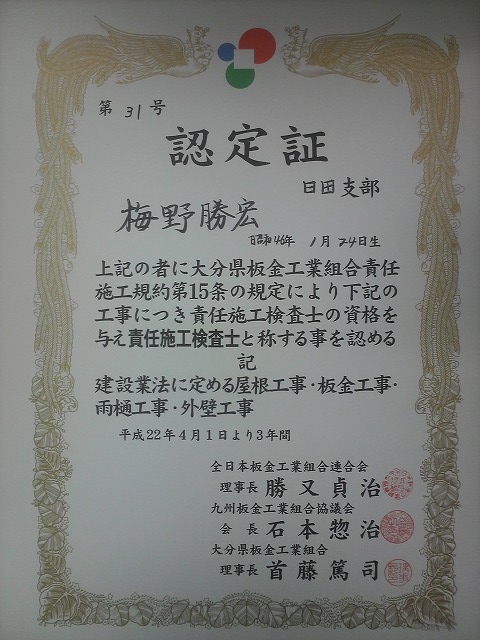 第31号
認定証
日田支部
梅野勝宏
昭和46年 1月24日生
上記の者に大分県板金工業組合責任
施工規約第15条の規定により下記の
工事につき責任施工検査士の資格を
与え責任施工検査士と称する事を認める
記
建設業法に定める屋根工事・板金工事・
雨樋工事・外壁工事
平成22年4月1日より3年間
全日本板金工業組合連合会
理事長 勝又貞治
九州板金工業組合協議会
会長 石本惣治
大分県板金工業組合
理事長 首藤篤司